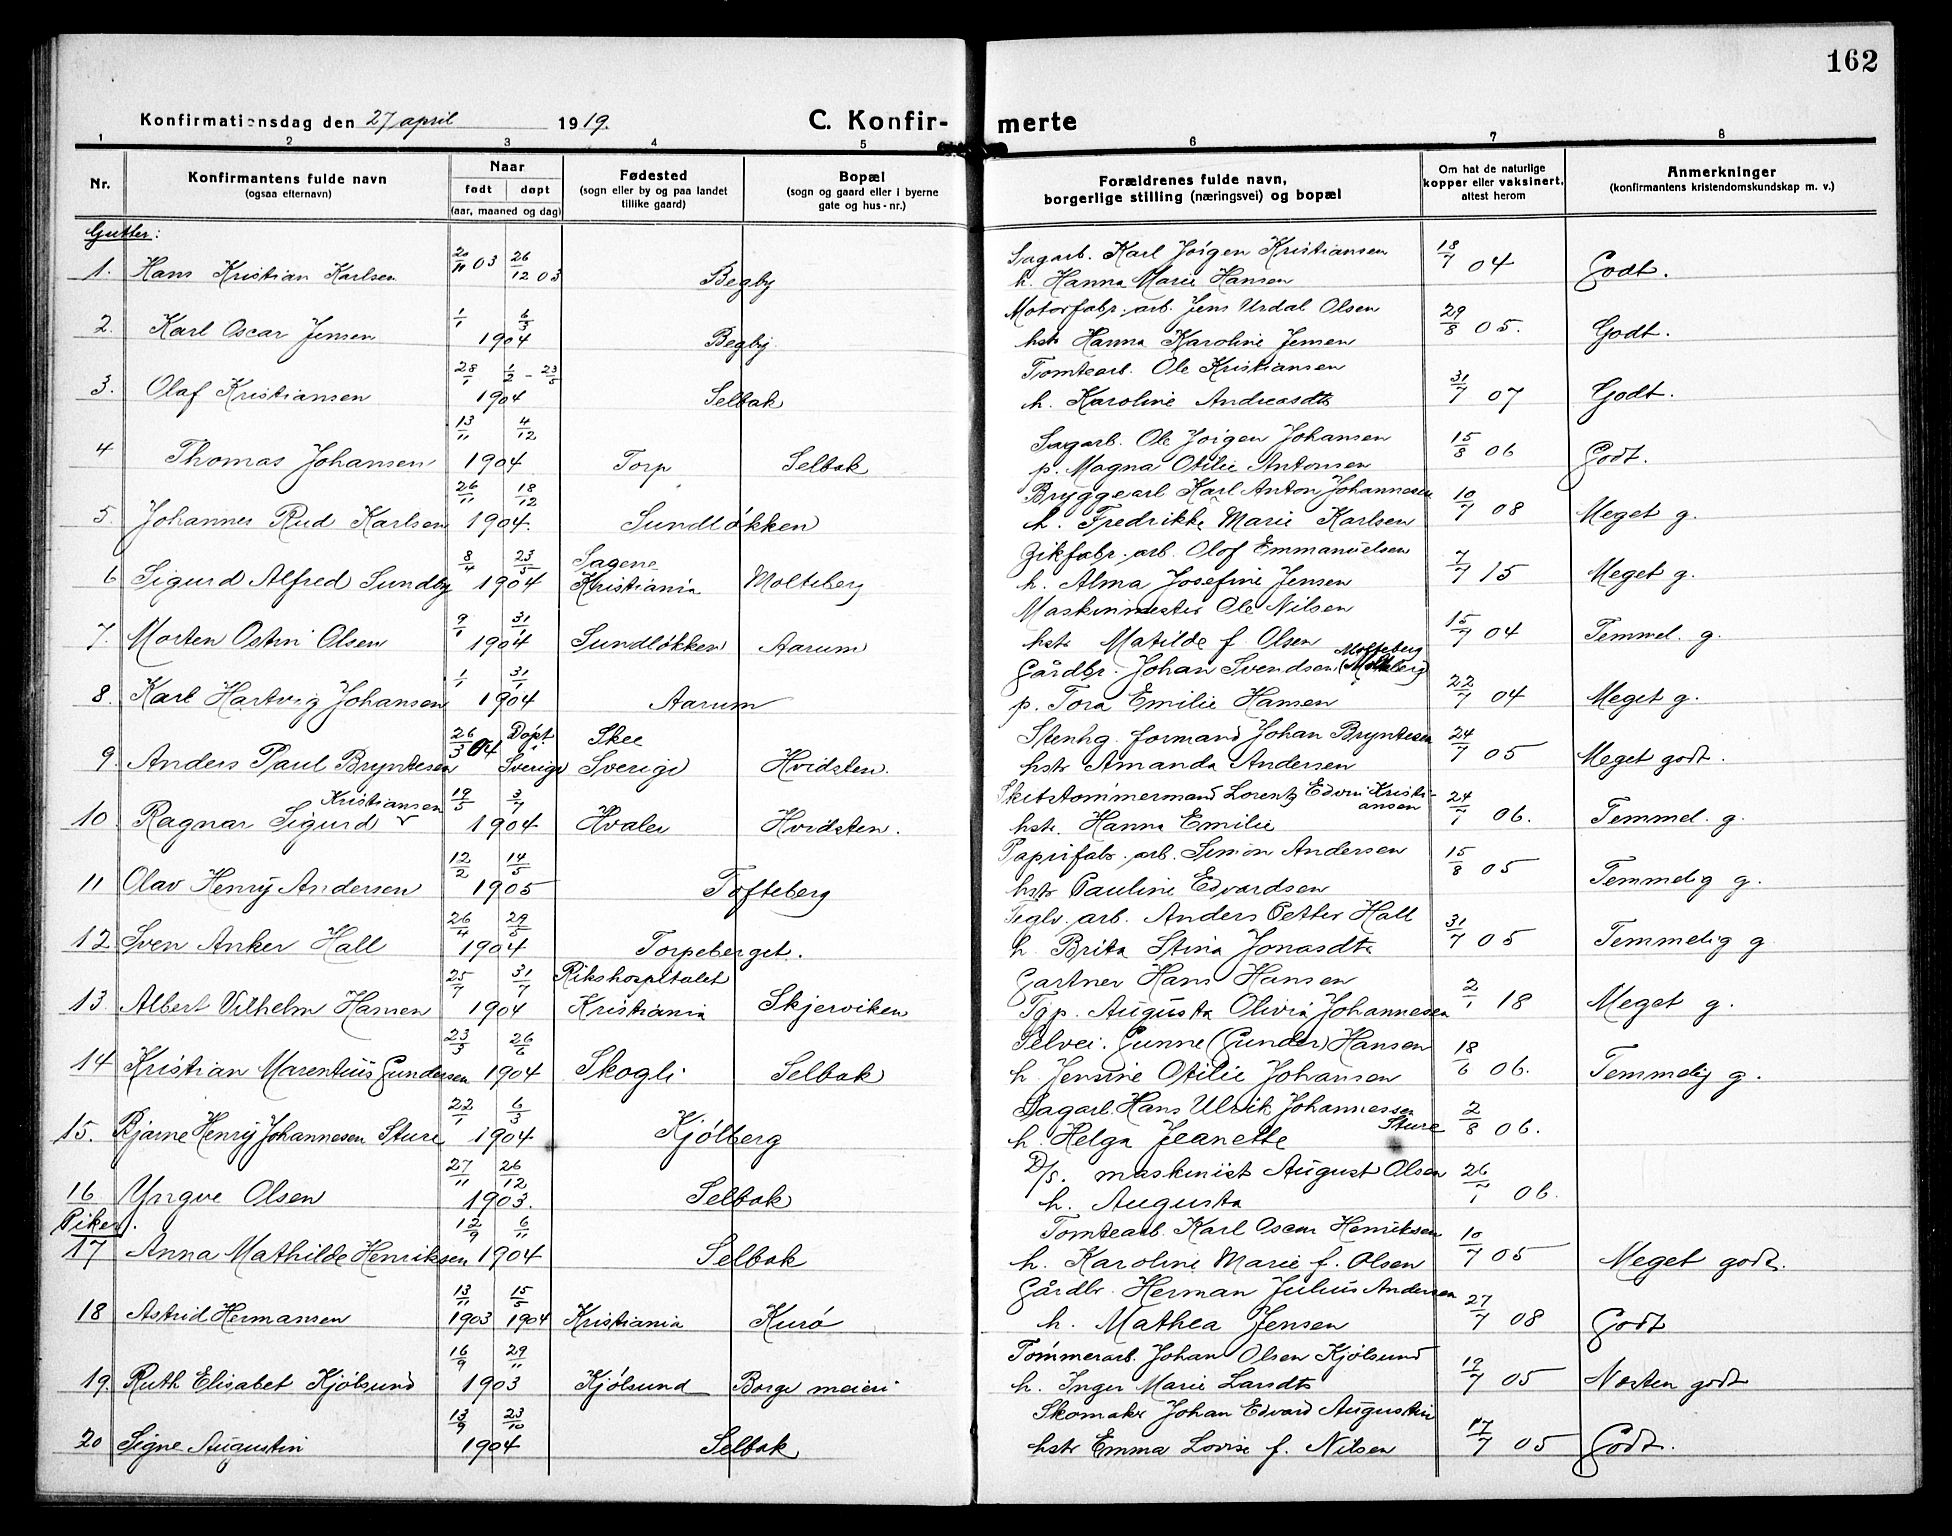 162
Konfirmationsdag den 27 april 1919.
C. Konfir-merte
1 2 3 4 5 6 7 8
Nr.
Konfirmantens fulde navn
(ogsaa efternavn)
Naar
født døpt
(aar, maaned og dag)
Fødested
(sogn eller by og paa landet
tillike gaard)
Bopæl
(sogn og gaard eller i byerne
gate og hus-nr.)
Forældrenes fulde navn,
borgerlige stilling (næringsvei) og bopæl
Om hat de naturlige
kopper eller vaksinert,
attest herom
Anmerkninger
(konfirmantens kristendomskundskap m. v.)
Gutter:
1. Hans Kristian Karlsen 20/11 03 26/12 03 Begby
Sagarb. Karl Jørgen Kristiansen
h. Hanna Marie Hansen 18/7 04 Godt.
2. Karl Oscar Jensen 1/1 6/3 1904 Begby
Motorfabr. arb. Jens Urdal Olsen
hstr Hanna Karoline Jensen 29/8 05. Godt.
3. Olaf Kristiansen 28/1 1/2 - 23/5 1904 Selbak
Tomtearb. Ole Kristiansen
h. Karoline Andreasdtr 31/7 07 Godt.
4 Thomas Johansen 13/11 4/12 1904 Torp Selbak
Sagarb. Ole Jørgen Johansen
p. Magna Otilie Antonsen 15/8 06 Godt.
5. Johannes Rud Karlsen 26/11 18/12 1904. Sundløkken
Bryggearb Karl Anton Johannesen
h. Fredrikke Marie Karlsen 10/7 08 Meget g.
6 Sigurd Alfred Sundby 8/4 23/5 1904 Sagene Kristiania Molteberg
Zikfabr. arb. Olof Emmanuelsen
h. Alma Josefine Jensen 7/7 15 Meget g.
7. Morten Ostin Olsen 9/1 31/1 1904 Sundløkken Aarum
Maskinmester Ole Nilsen
hstr Matilde f. Olsen 15/7 04 Temmel. g.
8. Karl Hartvig Johansen 1/1 31/1 1904 Aarum
Gårdbr. Johan Svendsen (Molteberg) Molteberg
p. Tora Emilie Hansen 22/7 04 Meget g.
9. Anders Paul Bryntesen 26/3 04 Døpt i Sverige Skee Sverige Hvidsten.
Stenhg. formand Johan Bryntesen
hstr Amanda Andersen 24/7 05 Meget godt.
10 Ragnar Sigurd Kristiansen 19/5 3/7 1904 Hvaler Hvidsten.
Skibstømmermand Lorentz Edvin Kristiansen
hstr. Hanna Emilie 24/7 06. Temmel. g.
11 Olav Henry Andersen 12/2 14/5 1905 Tofteberg
Papirfabr. arb. Simon Andersen
hstr Pauline Edvardsen 15/8 05 Temmelig g.
12 Sven Anker Hall 26/4 29/5 1904 Torpeberget.
Teglv. arb. Anders Petter Hall
h. Brita Stina Jonasdtr 31/7 05 Temmelig g
13. Albert Vilhelm Hansen 25/7 31/7 1904 Rikshospitalet Kristiania Skjerviken
Gartner Hans Hansen
Tgp. Augusta Olivia Johannesen 2/1 18 Meget g.
14 Kristian Marentius Gundersen 23/3 26/6 1904 Skogli Selbak
Selvei. Gunne (Gunder) Hansen
h. Jensine Otilie Johansen 18/6 06. Temmelig g.
15. Bjarne Henry Johannesen Sture 22/1 6/3 1904 Kjølberg
Sagarb. Hans Ulrik Johannessen Sture
h. Helga Jeanette 2/8 06.
16 Yngve Olsen 27/11 26/12 1903. Selbak
D/S. maskinist August Olsen
h. Augusta 26/1 06.
Piker.
17 Anna Mathilde Henriksen 12/9 6/11 1904 Selbak
Tomtearb. Karl Oscar Henriksen
h. Karoline Marie f. Olsen 10/7 05 Meget godt.
18 Astrid Hermansen 13/11 1903 15/5 1904 Kristiania Kurø
Gårdbr. Herman Julius Andersen
h. Mathea Jensen 27/7 08 Godt
19. Ruth Elisabet Kjølsund 16/9 29/11 1903 Kjølsund Borge meieri
Tømmerarb. Johan Olsen Kjølsund
h. Inger Marie Larsdtr 19/7 05 Næsten godt
20 Signe Augustin 13/9 23/10 1904 Selbak
Skomaker Johan Edvard Augustin
hstr Emma Lovise f. Nilsen 17/7 05 Godt.